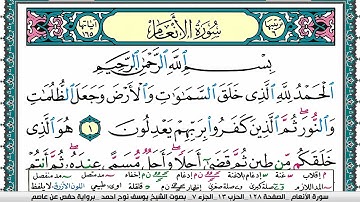 سُورَةُ الأَنْعَامِ
بِسْمِ ٱللَّهِ ٱلرَّحْمَٰنِ ٱلرَّحِيمِ
ٱلْحَمْدُ لِلَّهِ ٱلَّذِى خَلَقَ ٱلسَّمَٰوَٰتِ وَٱلْأَرْضَ وَجَعَلَ ٱلظُّلُمَٰتِ
وَٱلنُّورَ ثُمَّ ٱلَّذِينَ كَفَرُوا۟ بِرَبِّهِمْ يَعْدِلُونَ ١ هُوَ ٱلَّذِى
خَلَقَكُم مِّن طِينٍ ثُمَّ قَضَىٰٓ أَجَلًا وَأَجَلٌ مُّسَمًّى عِندَهُۥ ثُمَّ أَنتُمْ
سورة الأنعام الصفحة ١٢٨ الحزب ١٣ الجزء ٧ بصوت الشيخ يوسف نوح احمد برواية حفص عن عاصم